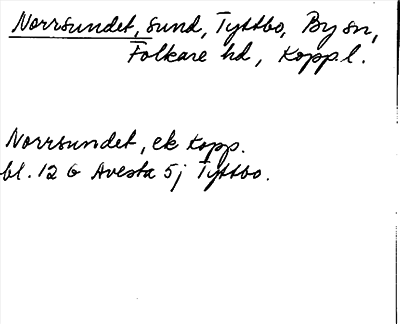 Norrsundet, sund, Tyttbo, By sn,
Folkare hd, Kopp.l.
Norrsundet, ek kopp.
bl. 12 G Avesta 5j Tyttbo.